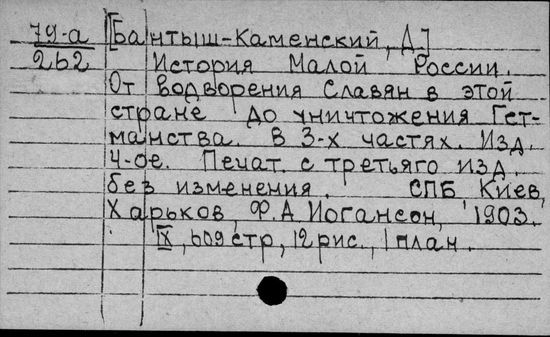 79-а [Бантыш-Каменский, Д.]
262 История Малой России.
От водворения Славян в этой
стране до уничтожения Гет-
манства. В 3-х частях. Изд.
4-ое. Печат. с третьяго изд.
без изменения. СПБ Киев,
Харьков, Ф.А. Иогансон, 1903.
IX, 609 стр, 12 рис., 1 план.